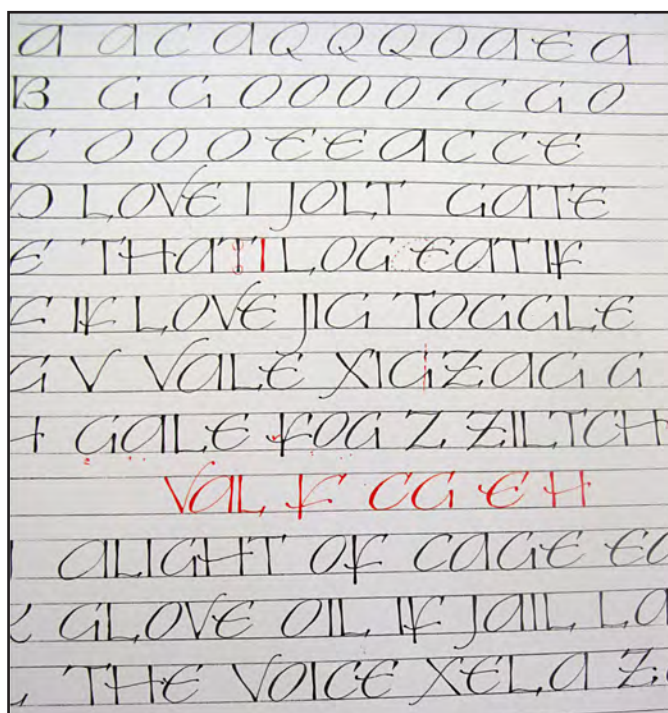 A A C A Q Q Q O A E A
B G G O O O O C G O
C O O O E E A C C E
D LOVE I JOLT GATE
E THAT I LOG EAT IF
F IF LOVE JIG TOGGLE
G V VALE XIGZAG G
H GALE FOG Z ZILTCH
VAL F CG E H
ALIGHT OF CAGE
GLOVE OIL IF JAIL
L THE VOICE XELA